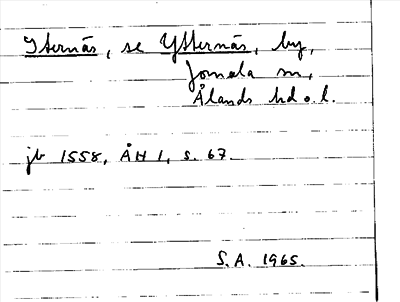 Iternäs, se Ytternäs, by,
Jomala sn,
Ålands hd o. l.
jb 1558, ÅH 1, s. 67.
S.A. 1965.